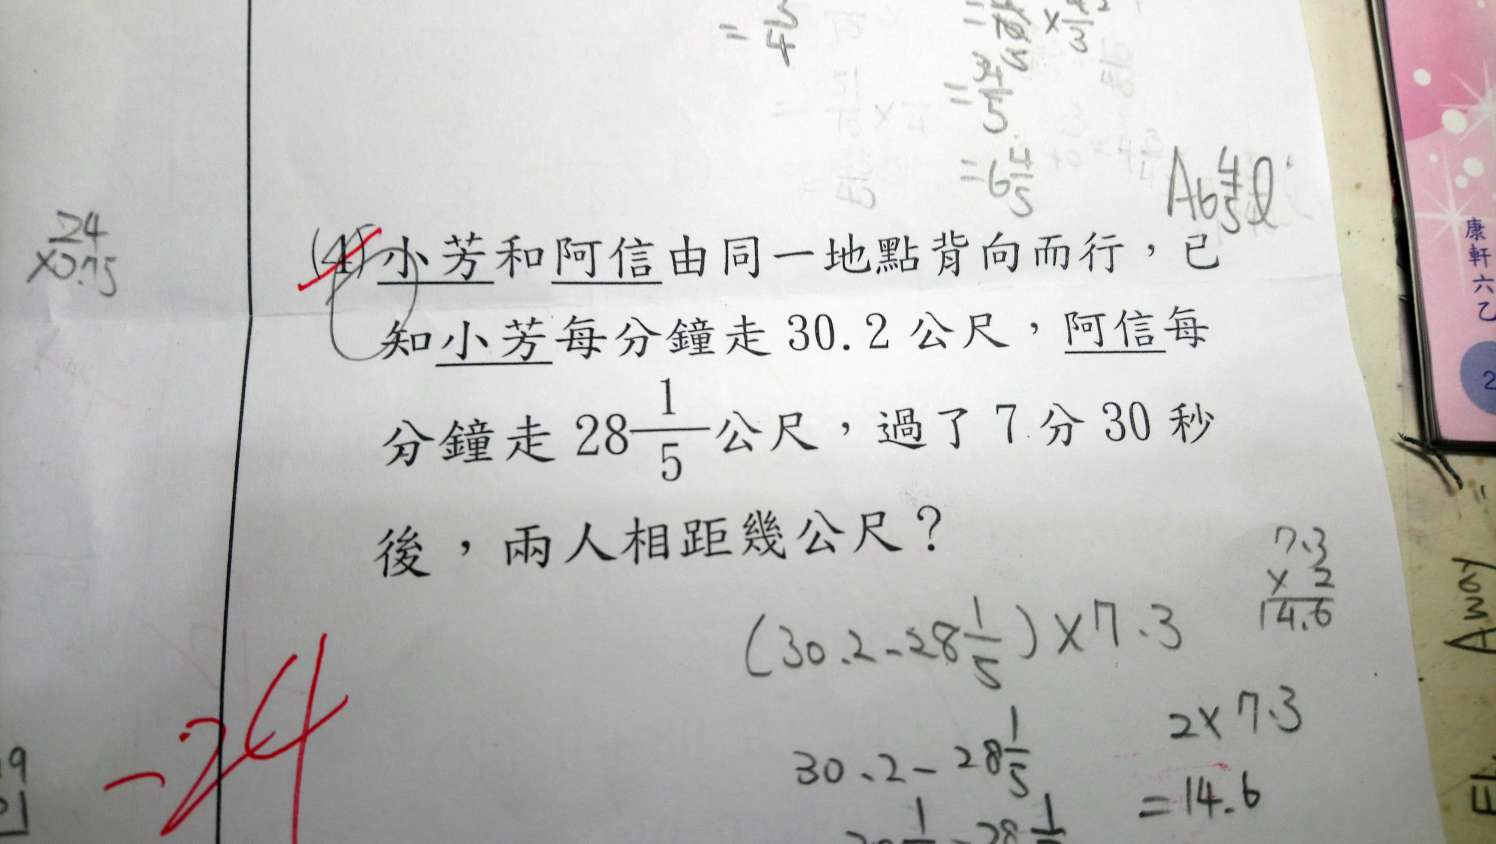 = 6 4/5
A 6 4/5 l
24
×0.75
(4) 小芳和阿信由同一地點背向而行，已
知小芳每分鐘走 30.2 公尺，阿信每
分鐘走 28 1/5 公尺，過了 7 分 30 秒
後，兩人相距幾公尺？
7.3
× 2
14.6
(30.2-28 1/5)×7.3
30.2-28 1/5
2×7.3
=14.6
-24
康軒六乙
2
Away